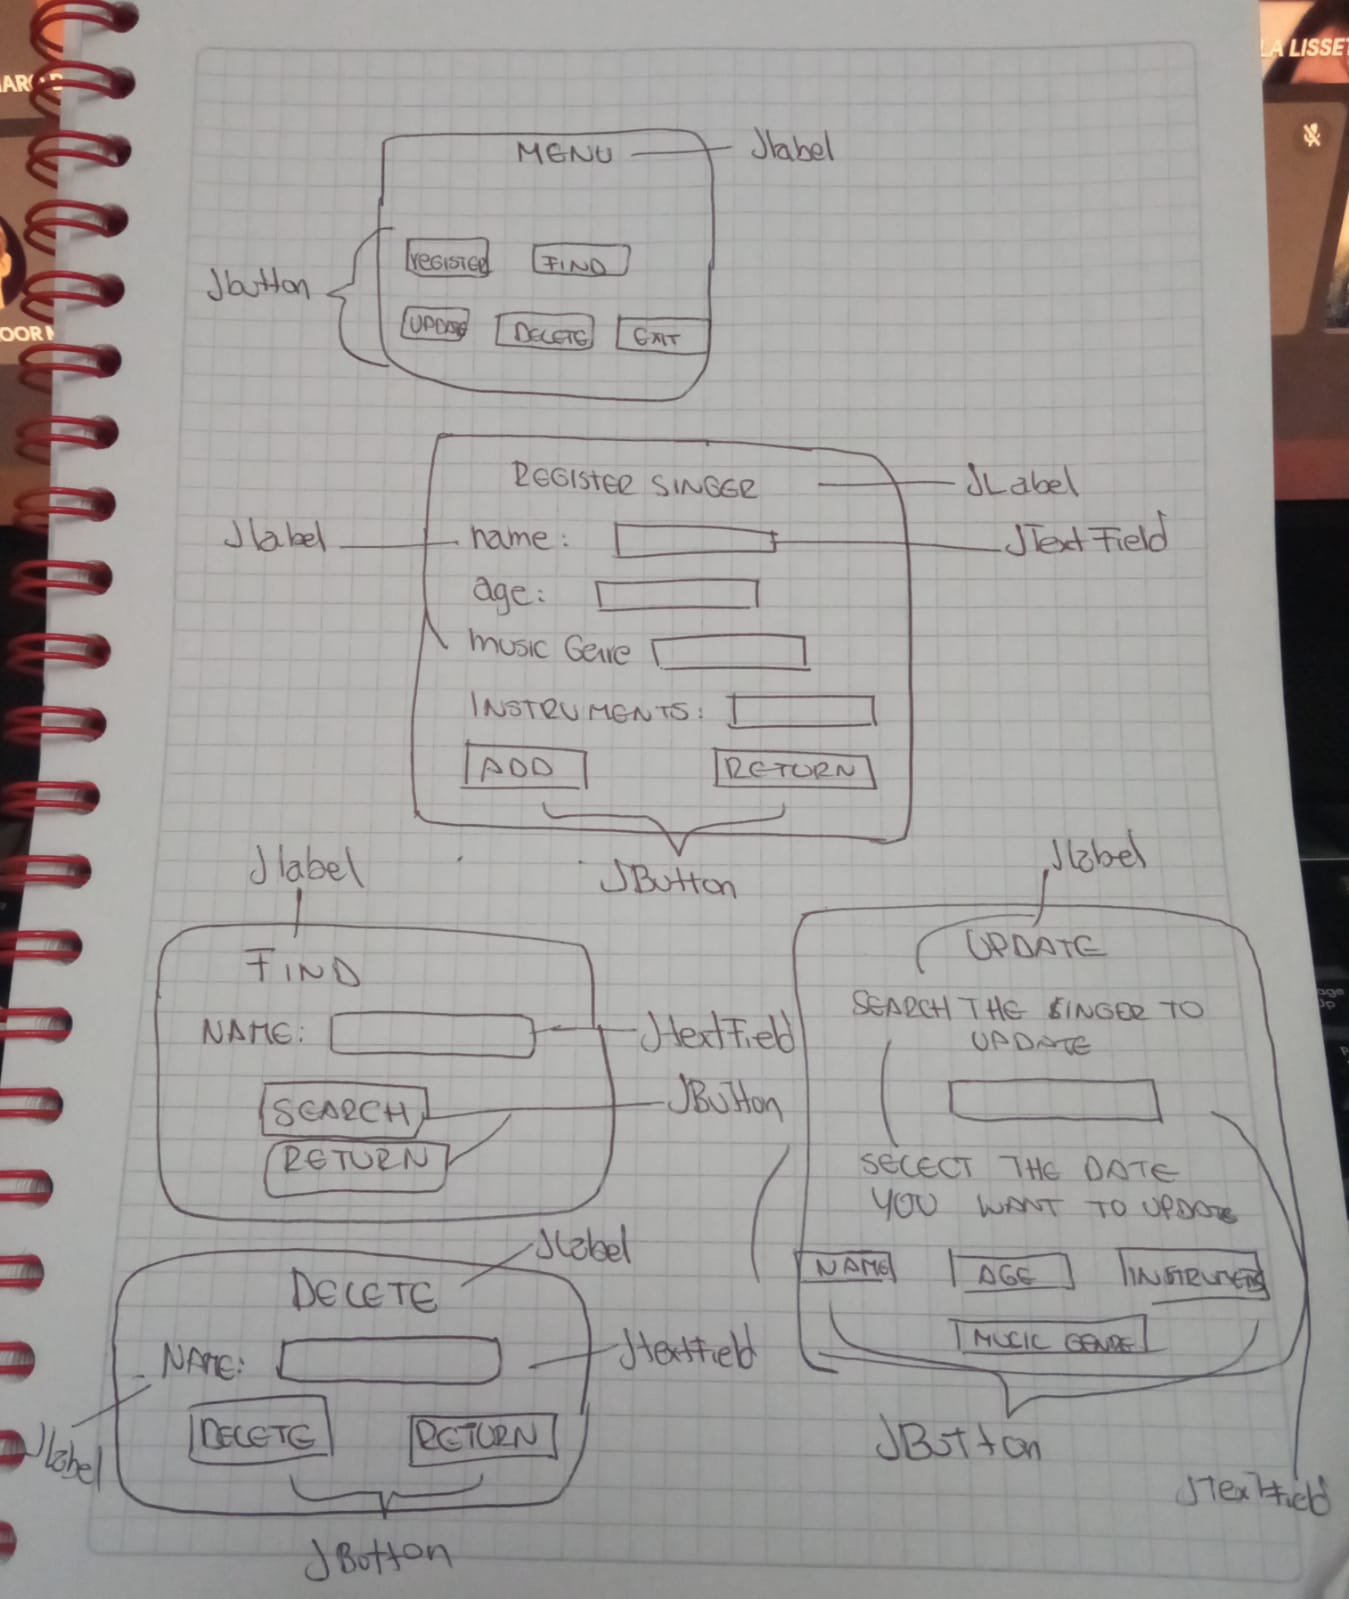 LA LISSET
MENU
Jlabel
REGISTER
FIND
Jbutton
UPDATE
DELETE
EXIT
REGISTER SINGER
JLabel
Jlabel
name:
JTextField
age:
music Genre
INSTRUMENTS:
ADD
RETURN
JButton
Jlabel
FIND
NAME:
JtextField
SEARCH
JButton
RETURN
Jlabel
UPDATE
SEARCH THE SINGER TO
UPDATE
SELECT THE DATE
YOU WANT TO UPDATE
NAME
AGE
INSTRUMENT
MUSIC GENRE
JButton
JTextField
Jlabel
DELETE
NAME:
JtextField
Jlabel
DELETE
RETURN
JButton